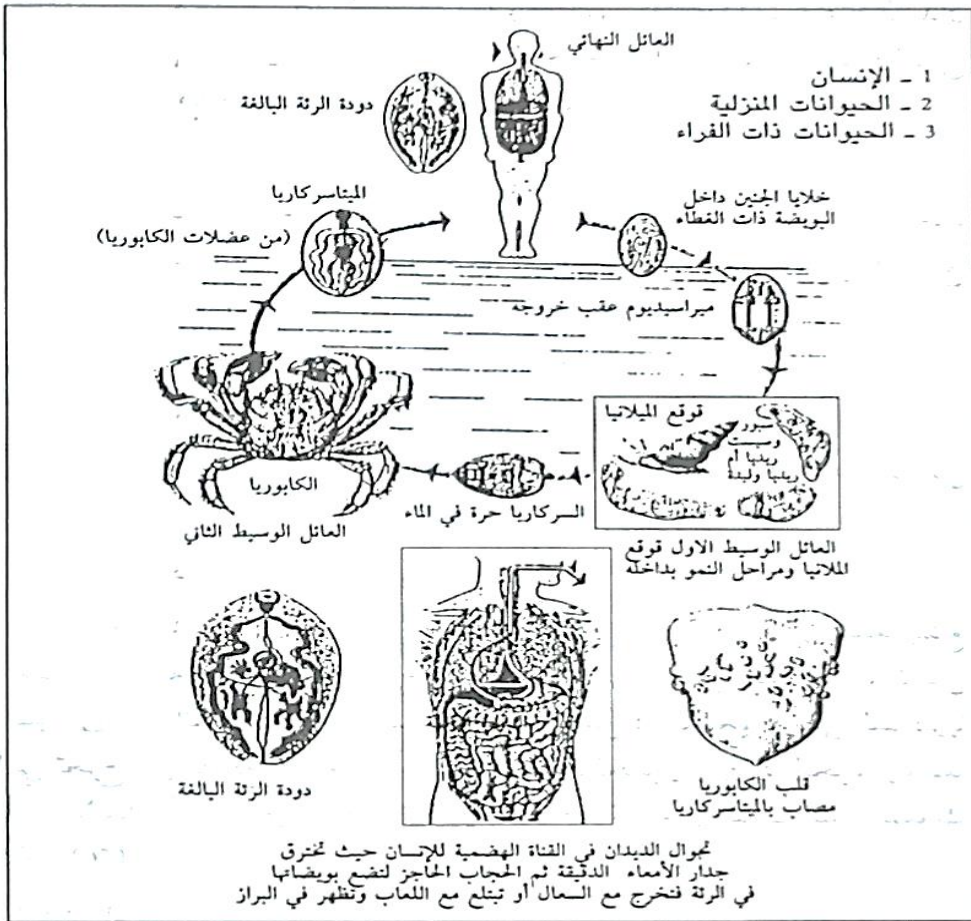 العائل النهائي
1 - الإنسان
2 - الحيوانات المنزلية
3 - الحيوانات ذات الفراء
دودة الرئة البالغة
الميتاسركاريا
(من عضلات الكابوريا)
خلايا الجنين داخل
البويضة ذات الغطاء
ميراسيديوم عقب خروجه
قوقع الميلانيا
سبورو
وسيست
ريديا أم
ريديا وليدة
الكابوريا
العائل الوسيط الثاني
السركاريا حرة في الماء
العائل الوسيط الاول قوقع
الملانيا ومراحل النمو بداخله
دودة الرئة البالغة
قلب الكابوريا
مصاب بالميتاسركاريا
تجوال الديدان في القناة الهضمية للإنسان حيث تخترق
جدار الأمعاء الدقيقة ثم الحجاب الحاجز لتضع بويضاتها
في الرئة فتخرج مع السعال أو تبتلع مع اللعاب وتظهر في البراز